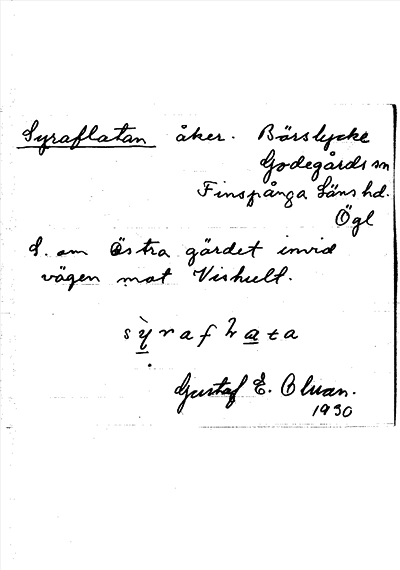 Syraflatan åker. Börslycke
Godegårds sn
Finspånga Läns hd.
Ögl
S. om östra gärdet invid
vägen mot Vishult.
sỳrafꞎata
Gustaf E.
1930